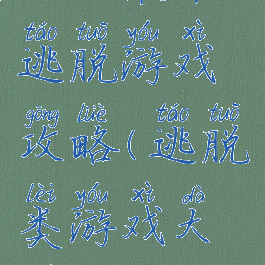 táo tuō yóu xì
逃脱游戏
gōng lüè táo tuō
攻略(逃脱
lèi yóu xì dà
类游戏大